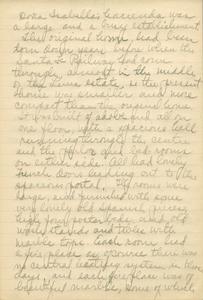 Dona Isabella's hacienda was
a large and a busy establishment
The original home had been
torn down years before when the
Santa Fe Railway had come
through, almost in the middle
of the Luna Estate, so the present
house was smaller and more
compact than the original home.
It was built of adobe and all on
one floor, with a spacious hall
running through the centre
and the office and bed rooms
on either side. All had lovely
French doors leading out to the
spacious portal. The rooms were
large, and furnished with some
very lovely old Spanish pieces,
high four poster beds and, old
wash stands and tables with
marble tops. Each room had
a fire place as of course there was
no central heating system in those
days, and each fire place was of
beautiful marble, some of which